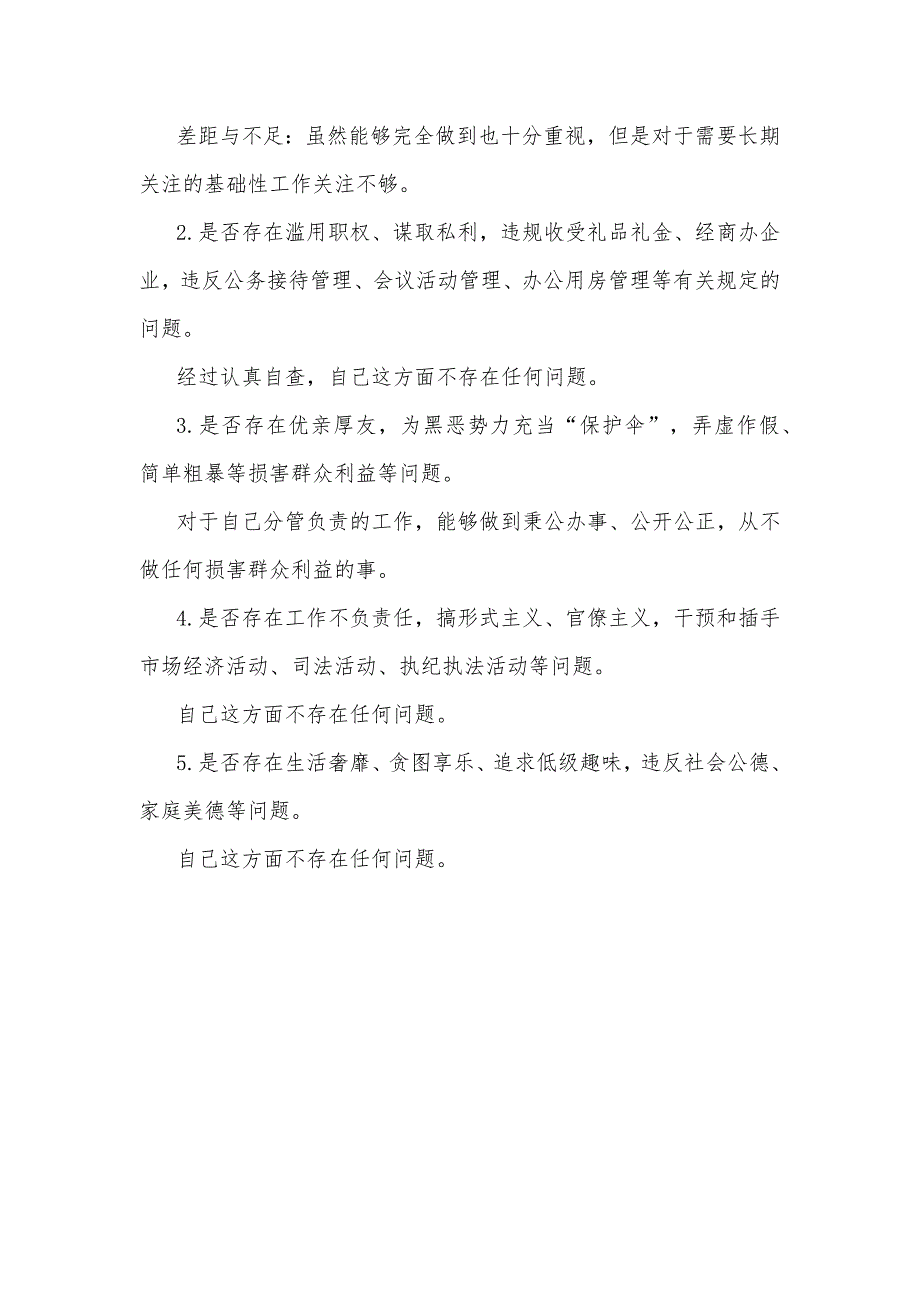 差距与不足：虽然能够完全做到也十分重视，但是对于需要长期
关注的基础性工作关注不够。
2.是否存在滥用职权、谋取私利，违规收受礼品礼金、经商办企
业，违反公务接待管理、会议活动管理、办公用房管理等有关规定的
问题。
经过认真自查，自己这方面不存在任何问题。
3.是否存在优亲厚友，为黑恶势力充当“保护伞”，弄虚作假、
简单粗暴等损害群众利益等问题。
对于自己分管负责的工作，能够做到秉公办事、公开公正，从不
做任何损害群众利益的事。
4.是否存在工作不负责任，搞形式主义、官僚主义，干预和插手
市场经济活动、司法活动、执纪执法活动等问题。
自己这方面不存在任何问题。
5.是否存在生活奢靡、贪图享乐、追求低级趣味，违反社会公德、
家庭美德等问题。
自己这方面不存在任何问题。